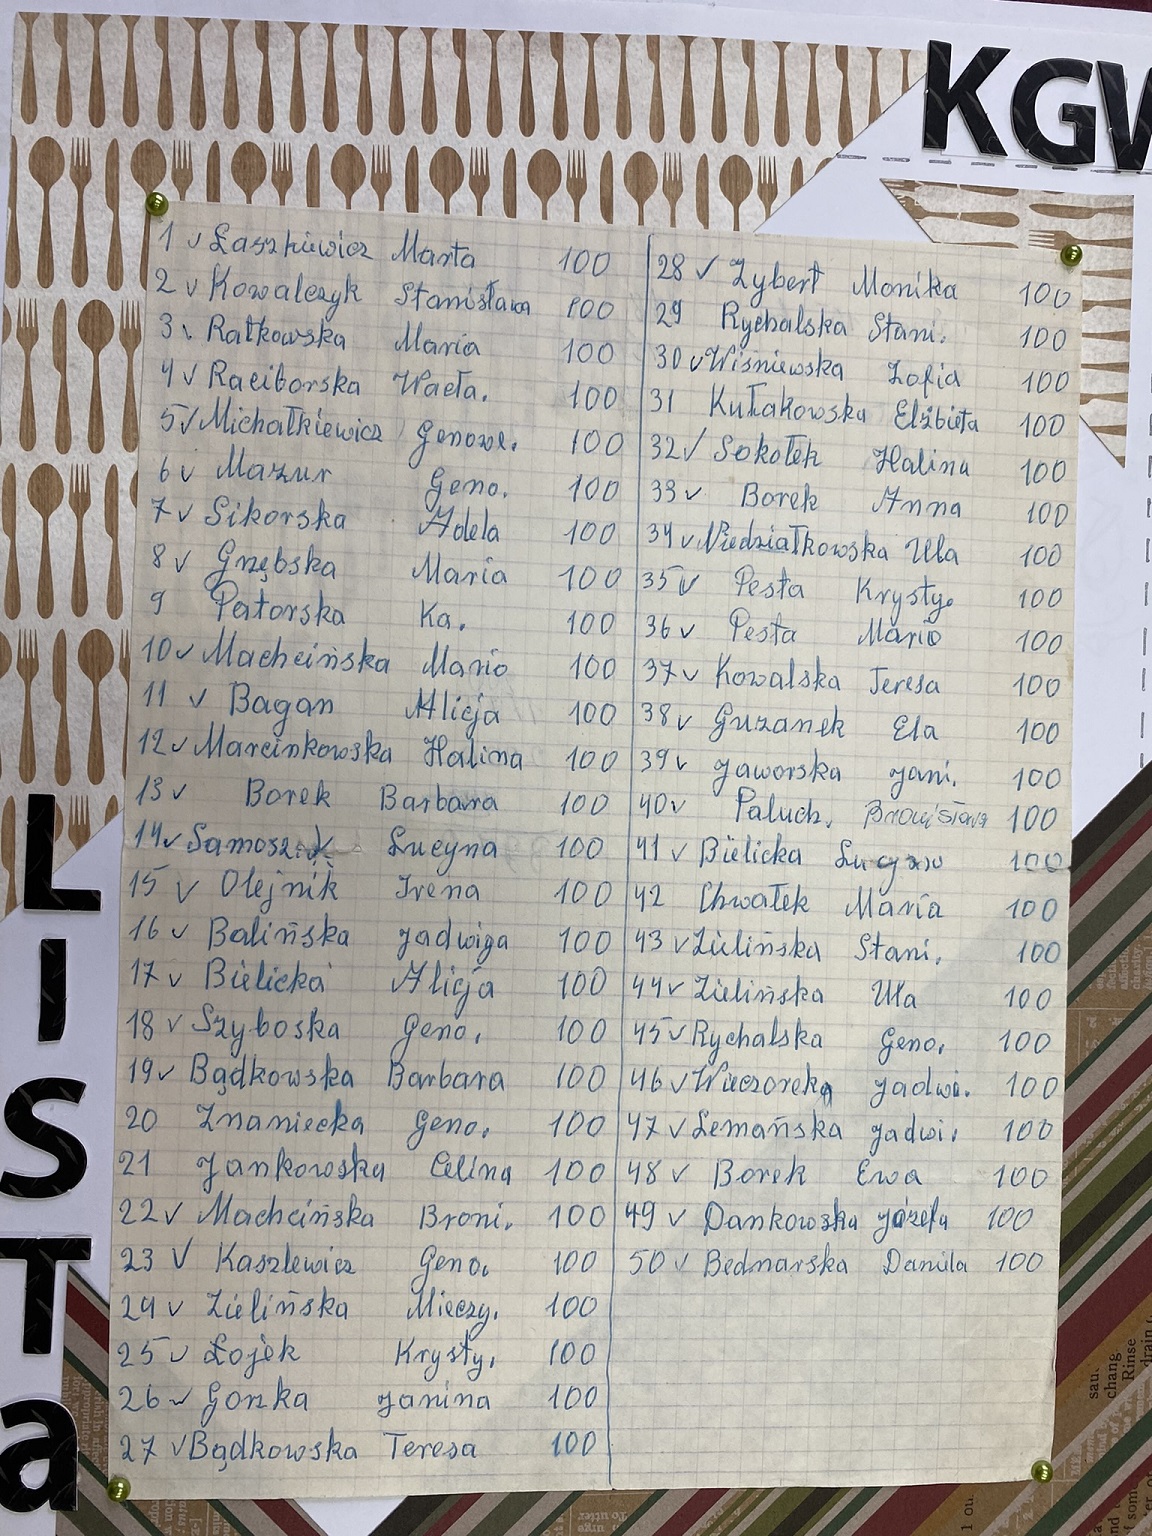 KGW
LISTa
1 v Łaszkiewicz Marta 100
2 v Kowalczyk Stanisława 100
3 v Ratkowska Maria 100
4 v Raciborska Wacła. 100
5 v Michałkiewicz Genowe. 100
6 v Mazur Geno. 100
7 v Sikorska Adela 100
8 v Grzębska Maria 100
9 Patorska Ka. 100
10 v Machcińska Maria 100
11 v Bagan Alicja 100
12 v Marcinkowska Halina 100
13 v Borek Barbara 100
14 v Lucyna 100
15 v Olejnik Irena 100
16 v Balińska Jadwiga 100
17 v Bielicka Alicja 100
18 v Szyboska Geno. 100
19 v Bądkowska Barbara 100
20 Znaniecka Geno. 100
21 Jankowska Celina 100
22 v Machcińska Broni. 100
23 v Kaszlewicz Geno. 100
24 v Zielińska Mieczy. 100
25 v Łojek Krysty. 100
26 v Gorzka Janina 100
27 v Bądkowska Teresa 100
28 v Zybert Monika 100
29 Rychalska Stani. 100
30 v Wiśniewska Zofia 100
31 Kułakowska Elżbieta 100
32 v Sokołek Halina 100
33 v Borek Anna 100
34 v Niedziałkowska Ula 100
35 v Pesta Krysty. 100
36 v Pesta Maria 100
37 v Kowalska Teresa 100
38 v Guzanek Ela 100
39 v Jaworska Jani. 100
40 v Paluch. Bronisława 100
41 v Bielicka 100
42 Chwałek Maria 100
43 v Zielińska Stani. 100
44 v Zielińska Ula 100
45 v Rychalska Geno. 100
46 v Wieczoreka Jadwi. 100
47 v Lemańska Jadwi. 100
48 v Borek Ewa 100
49 v Dankowska Józefa 100
50 v Bednarska Danuta 100